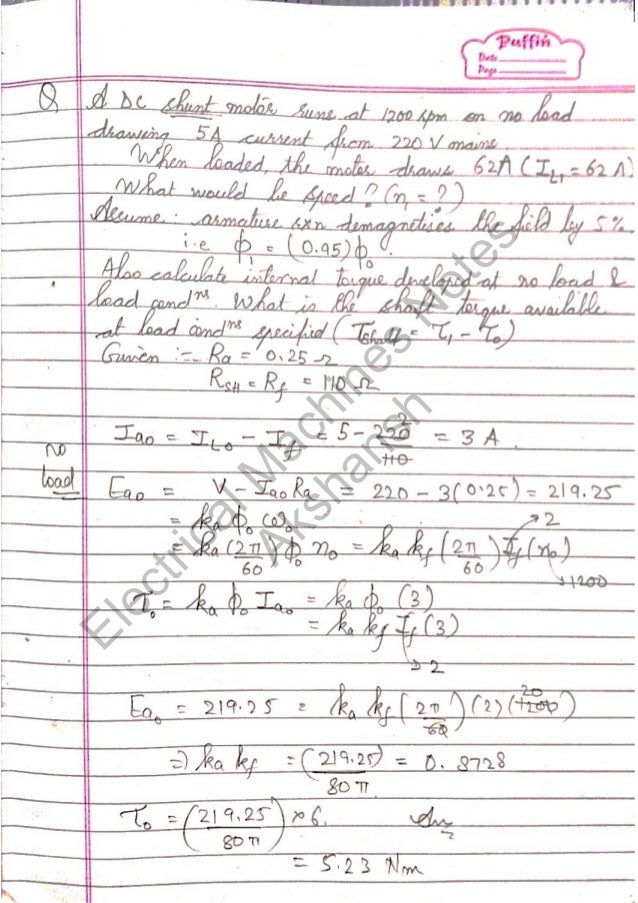 Puffin
Date
Page
Q A DC shunt motor runs at 1200 rpm on no load
drawing 5A current from 220 V mains.
When loaded, the motor draws 62A (I_L1 = 62 A)
What would be speed? (n₁ = ?)
Assume : armature rxn demagnetises the field by 5%.
i.e ϕ₁ = (0.95)ϕ₀.
Also calculate internal torque developed at no load &
load condⁿˢ. What is the shaft torque available
at load condⁿˢ specified (τ_shaft = τ₁ - τ₀)
Given :- Ra = 0.25 Ω
R_SH = R_f = 110 Ω
no load
Ia₀ = I_L0 - I_f = 5 - 220/110 2 = 3 A.
Ea₀ = V - Ia₀Ra = 220 - 3(0.25) = 219.25
= ka ϕ₀ ω₀ → 2
= ka (2π/60) ϕ₀ n₀ = ka kf (2π/60) If (n₀) → 1200
τ₀ = ka ϕ₀ Ia₀ = ka ϕ₀ (3)
= ka kf If (3)
→ 2
Ea₀ = 219.25 = ka kf (2π/60) (2) (1200) 20
⇒ ka kf = (219.25/80π) = 0.8728
τ₀ = (219.25/80π) × 6. Ans
= 5.23 Nm
Electrical Machines Notes
Akshansh